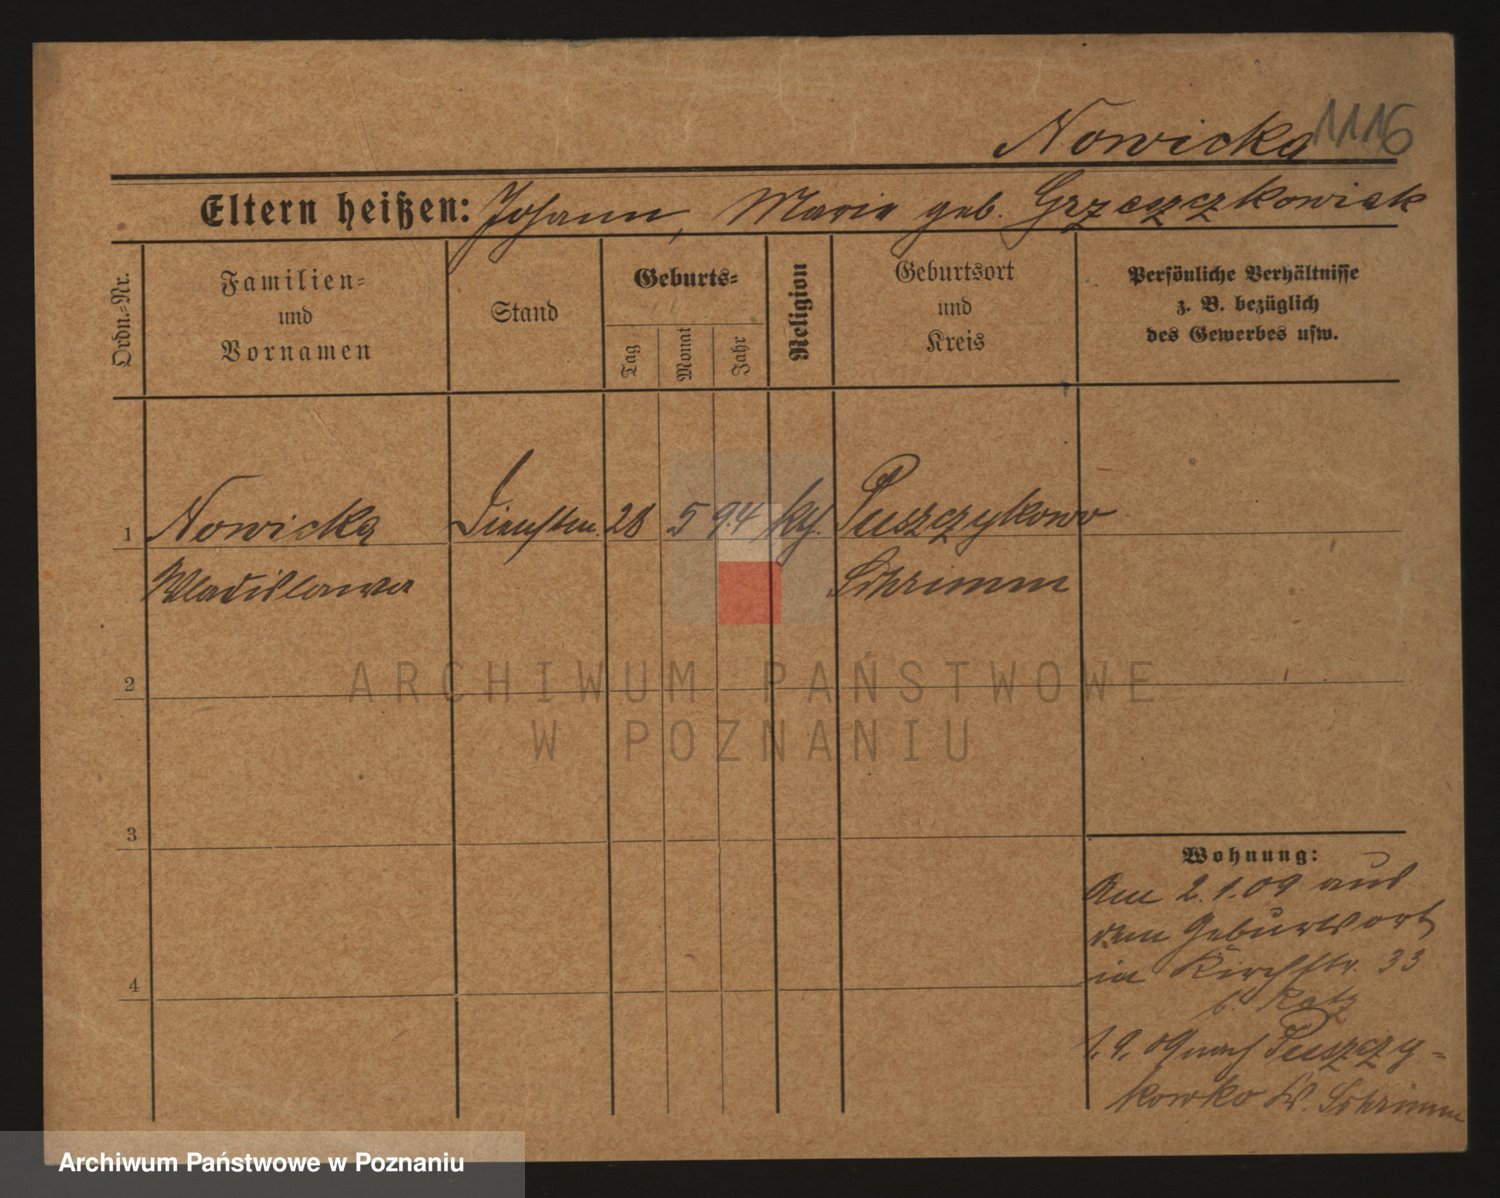 Nowicka 1116
Eltern heißen: Johann, Maria geb. Grzeszczkowiak
Ordn.-Nr.
Familien-
und
Vornamen
Stand
Geburts-
Tag
Monat
Jahr
Religion
Geburtsort
und
Kreis
Persönliche Verhältnisse
z. B. bezüglich
des Gewerbes usw.
1 Nowicka Dienstm. 28 5 94 kth. Puszczykowo
Wladislawa Schrimm
2
ARCHIWUM PAŃSTWOWE
W POZNANIU
3
Wohnung:
Am 2.1.09 aus
dem Geburtsort
in Kirchstr. 33
b. Katz
1.9.09 nach Puszczy-
kowko Kr. Schrimm
4
Archiwum Państwowe w Poznaniu